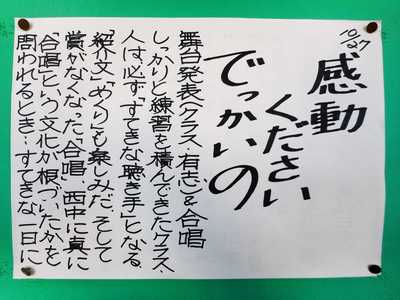 10/27
感動
ください
でっかいの
舞台発表(クラス・有志)&合唱
しっかりと練習を積んできたクラス・
人は必ず「すてきな聴き手」となる。
「紹介文」「めくり」も楽しみだ。そして
賞がなくなった「合唱」西中に真に
「合唱」という文化が根づいたかを
問われるとき…すてきな一日に